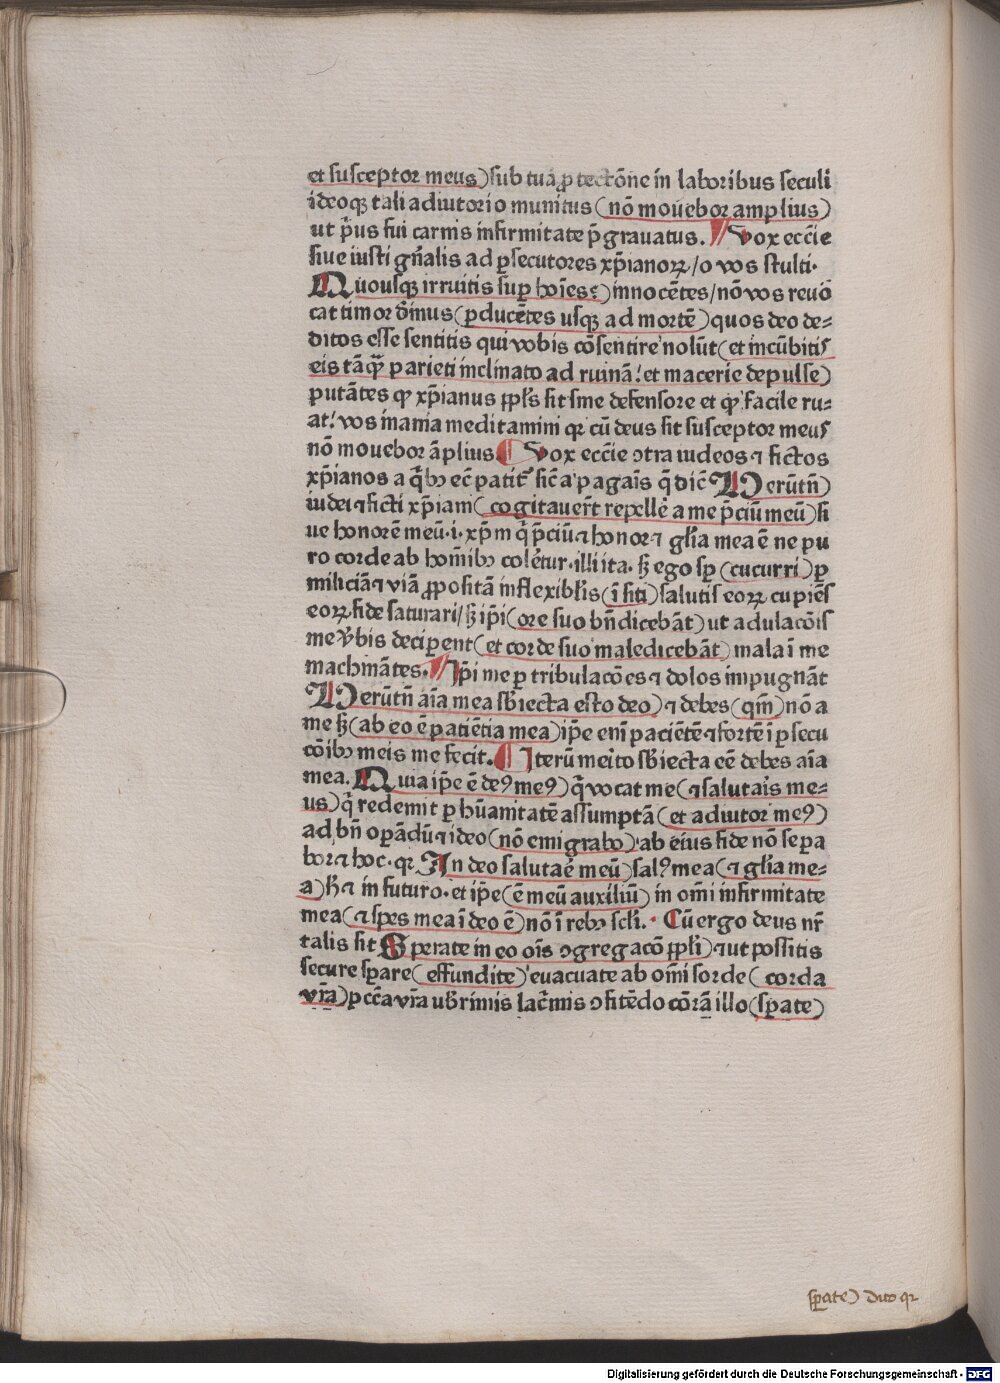 et susceptor meus) sub tuā ꝓtectōne in laboribus seculi
ideoqꝫ tali adiutorio munitus (nō mouebor amplius)
ut p̄us fui carnis infirmitate p̄grauatus. Vox ecc̄ie
siue iusti gn̄alis ad ꝑsecutores xp̄ianoꝝ / o vos stulti.
Quousqꝫ irruitis suꝑ hoīes?) innocētes / nō vos reuo
cat timor dīnus (ꝑducētes usqꝫ ad mortē) quos deo de⸗
ditos esse sentitis qui vobis cōsentire nolūt (et incūbitis
eis tāqꝫ parieti inclinato ad ruinā! et macerie depulse)
putātes ꝙ xp̄ianus ꝓpl̄s sit sine defensore et ꝙ facile ru⸗
at! vos inania meditamini qꝛ cū deus sit susceptor meus
nō mouebor āplius. Vox ecc̄ie ↄtra iudeos ⁊ fictos
xp̄ianos a q̄bꝫ ec̄ patit᷑ sic̄ a paganis q̄ dic̄ Uerūtn̄)
iudei ⁊ ficti xp̄iani (cogitauer̄t repellē a me p̄ciū meū) si
ue honorē meū .i. xp̄m q̄ p̄ciū ⁊ honor ⁊ gl̄ia mea ē ne pu
ro corde ab hom̄ibꝫ coleretur. illi ita. sꝫ ego sꝑ (cucurri) ꝑ
miliciā ⁊ viā ꝓpositā inflexibl̄is (ī siti) salutis eoꝝ cupiēs
eoꝝ fide saturari / sꝫ ip̄i (ore suo bn̄dicebāt) ut adulacōis
me v̄bis deciperent (et corde suo maledicebāt) mala ī me
machināties. Ip̄i me ꝑ tribulacōes ⁊ dolos impugnāt
Uerūtn̄ āīa mea sb̄iecta esto deo) ⁊ debes (qm̄) nō a
me sꝫ (ab eo ē patiētia mea) ip̄e eni paciētē ⁊ fortē ī ꝑsecu
cōibꝫ meis me fecit. Iterū merito sb̄iecta eē debes āīa
mea. Quia ip̄e ē deꝰ meꝰ) q̄ vocat me (⁊ salutaris me⸗
us) q̄ redemit ꝑ hūanitatē assumptā (et adiutor meꝰ)
ad bn̄ oꝑādū ⁊ ideo (nō emigrabo) ab eius fide nō sepa
bor ⁊ hoc. qꝛ In deo salutare meū) salꝰ mea (⁊ gl̄ia me⸗
a) h̄ ⁊ in futuro. et ip̄e (ē meū auxiliū) in om̄i infirmitate
mea (⁊ spes mea ī deo ē) nō ī rebꝫ scl̄i. Cū ergo deus nr̄
talis sit Sperate in eo oīs ↄgregacō ꝓpl̄i) ⁊ ut possitis
secure sꝑare (effundite) euacuate ab om̄i sorde (corda
vr̄a) pcc̄a vr̄a ub̄rimis lac̄mis ↄfitēdo cōrā illo (sꝑate)
sꝑate) dico qꝛ
Digitalisierung gefördert durch die Deutsche Forschungsgemeinschaft - DFG